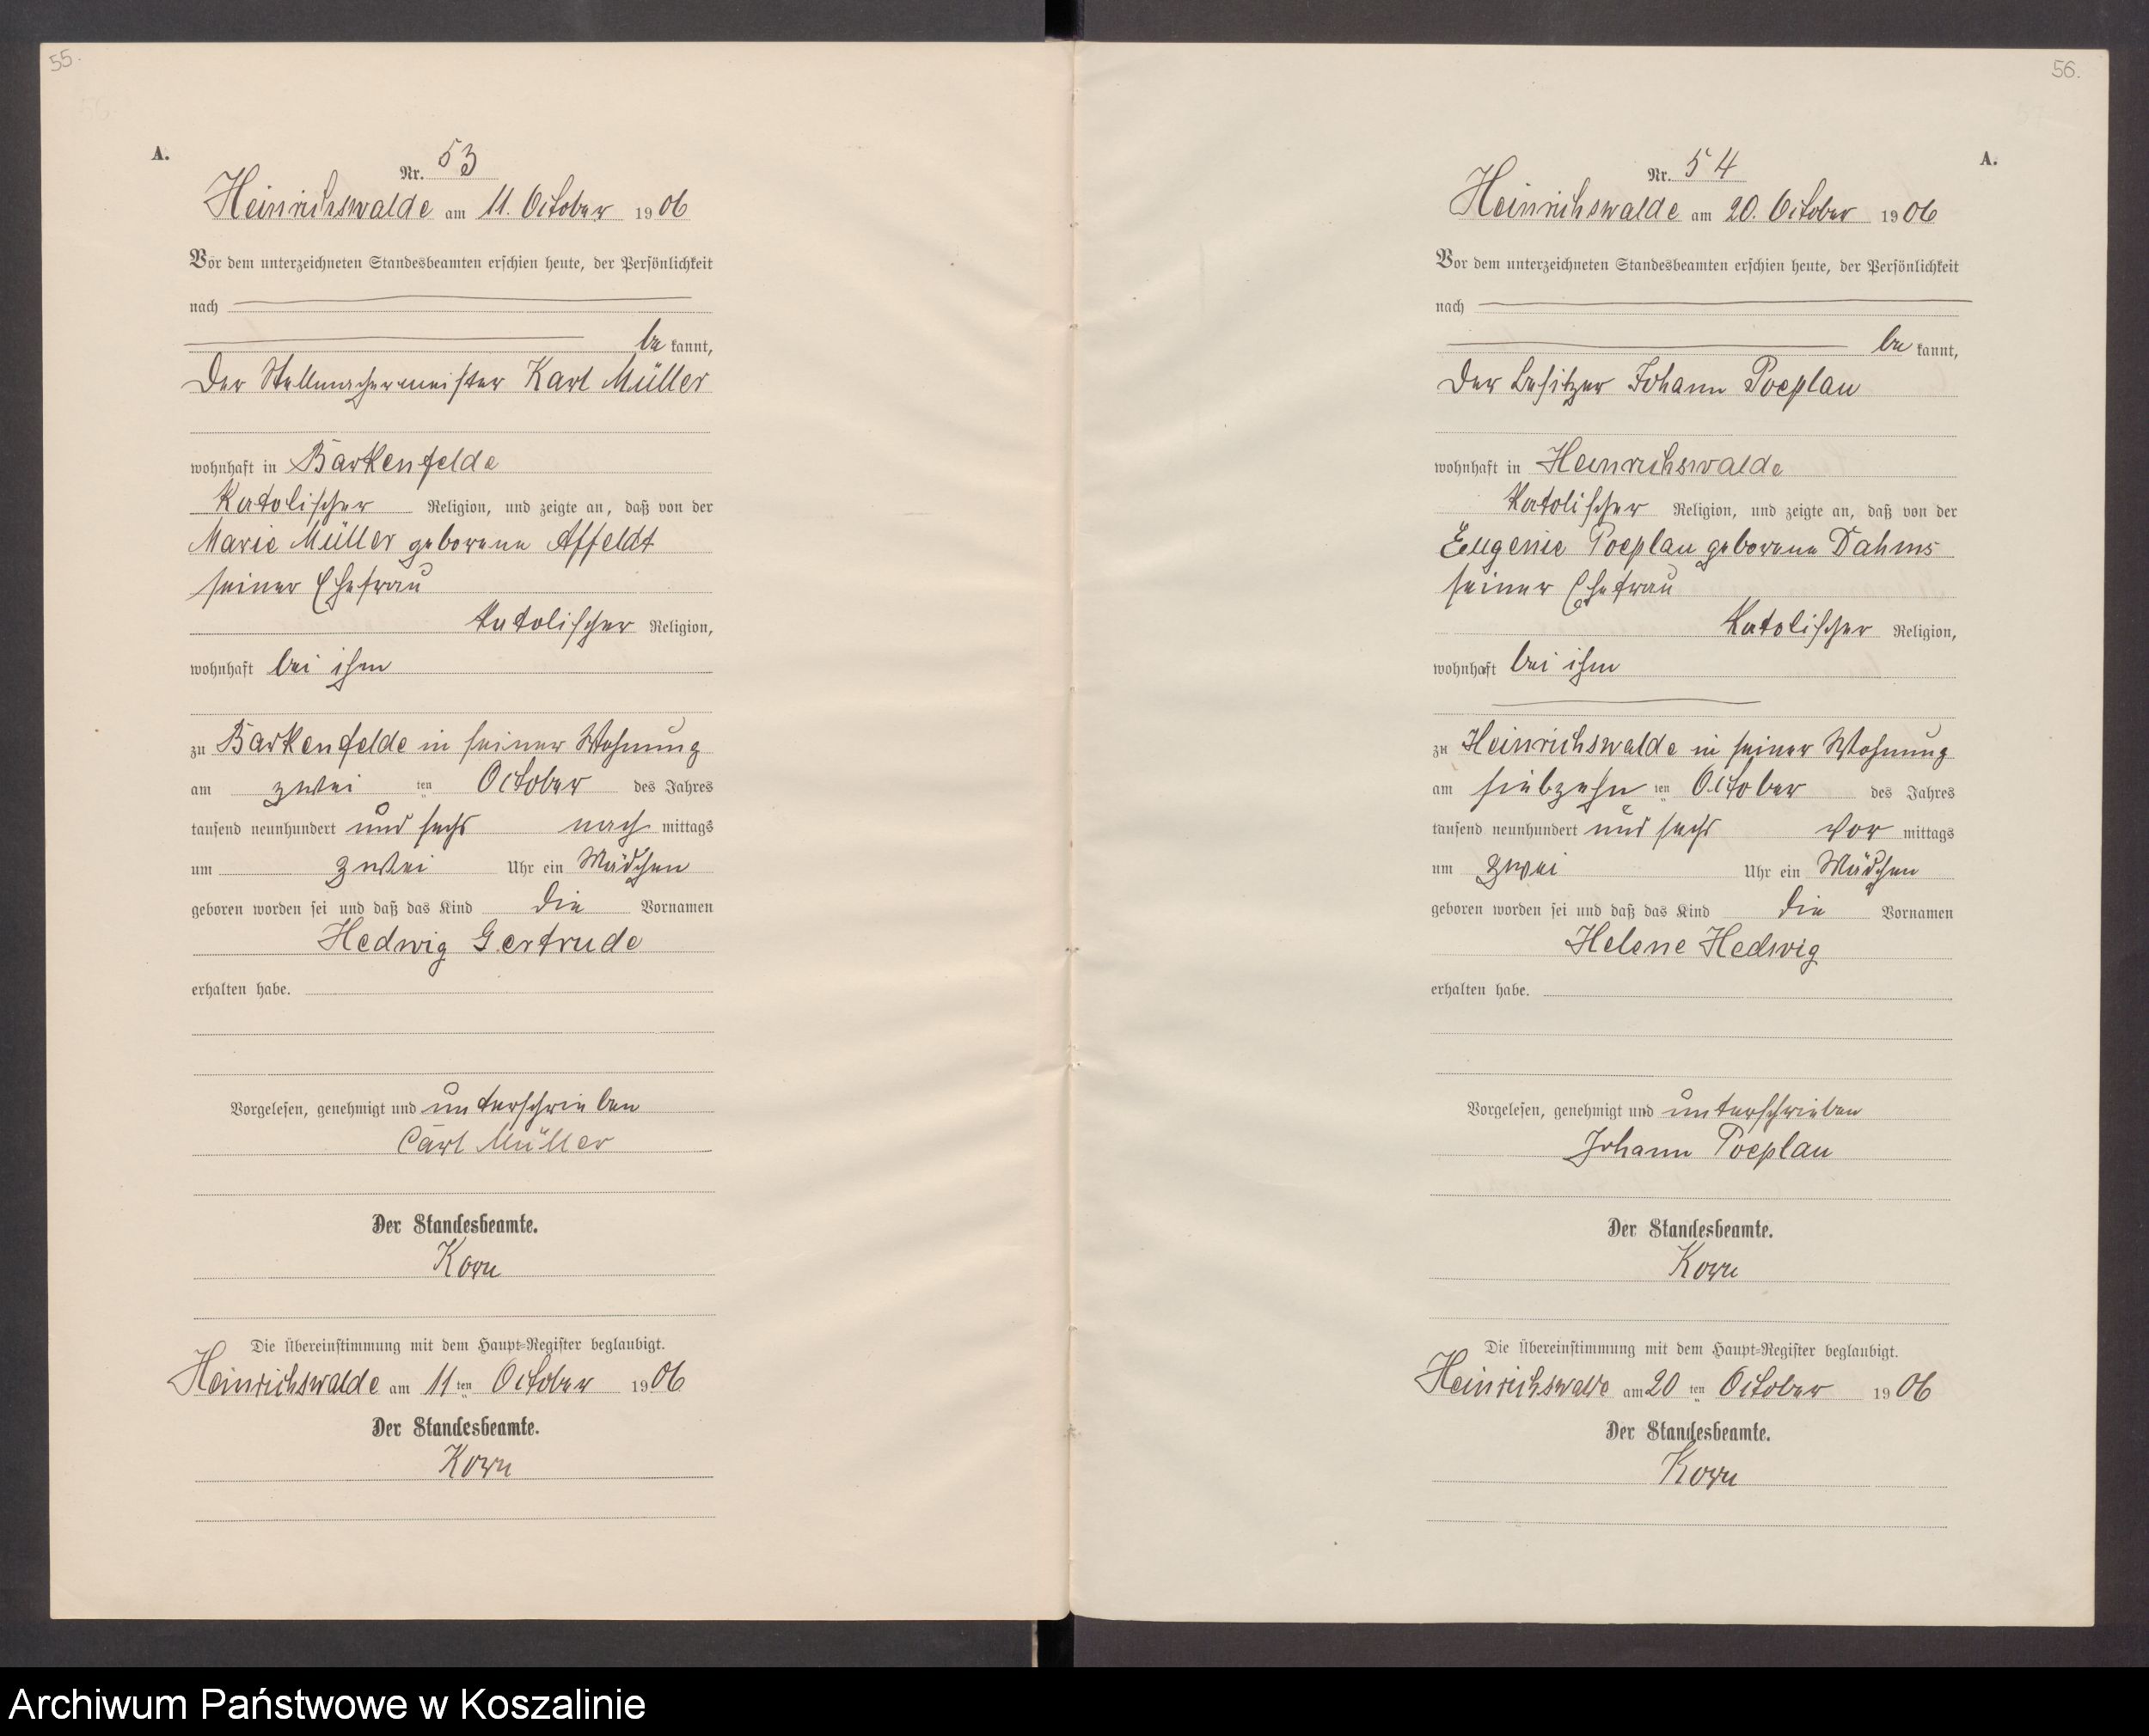 55.
A.
Nr. 53
Heinrichswalde am 11. October 1906
Vor dem unterzeichneten Standesbeamten erschien heute, der Persönlichkeit
nach
be kannt,
Der Stellmachermeister Karl Müller
wohnhaft in Barkenfelde
Katolischer Religion, und zeigte an, daß von der
Marie Müller geborene Affeldt
seiner Ehefrau
Katolischer Religion,
wohnhaft bei ihm
zu Barkenfelde in seiner Wohnung
am zwei ten October des Jahres
tausend neunhundert und sechs nach mittags
um zwei Uhr ein Mädchen
geboren worden sei und daß das Kind die Vornamen
Hedwig Gertrude
erhalten habe.
Vorgelesen, genehmigt und unterschrieben
Carl Müller
Der Standesbeamte.
Korn
Die Übereinstimmung mit dem Haupt-Register beglaubigt.
Heinrichswalde am 11 ten October 1906
Der Standesbeamte.
Korn
56.
A.
Nr. 54
Heinrichswalde am 20. October 1906
Vor dem unterzeichneten Standesbeamten erschien heute, der Persönlichkeit
nach
be kannt,
Der Besitzer Johann Poeplau
wohnhaft in Heinrichswalde
Katolischer Religion, und zeigte an, daß von der
Eugenie Poeplau geborene Dahms
seiner Ehefrau
Katolischer Religion,
wohnhaft bei ihm
zu Heinrichswalde in seiner Wohnung
am siebzehn ten October des Jahres
tausend neunhundert und sechs vor mittags
um zwei Uhr ein Mädchen
geboren worden sei und daß das Kind die Vornamen
Helene Hedwig
erhalten habe.
Vorgelesen, genehmigt und unterschrieben
Johann Poeplau
Der Standesbeamte.
Korn
Die Übereinstimmung mit dem Haupt-Register beglaubigt.
Heinrichswalde am 20 ten October 1906
Der Standesbeamte.
Korn
Archiwum Państwowe w Koszalinie